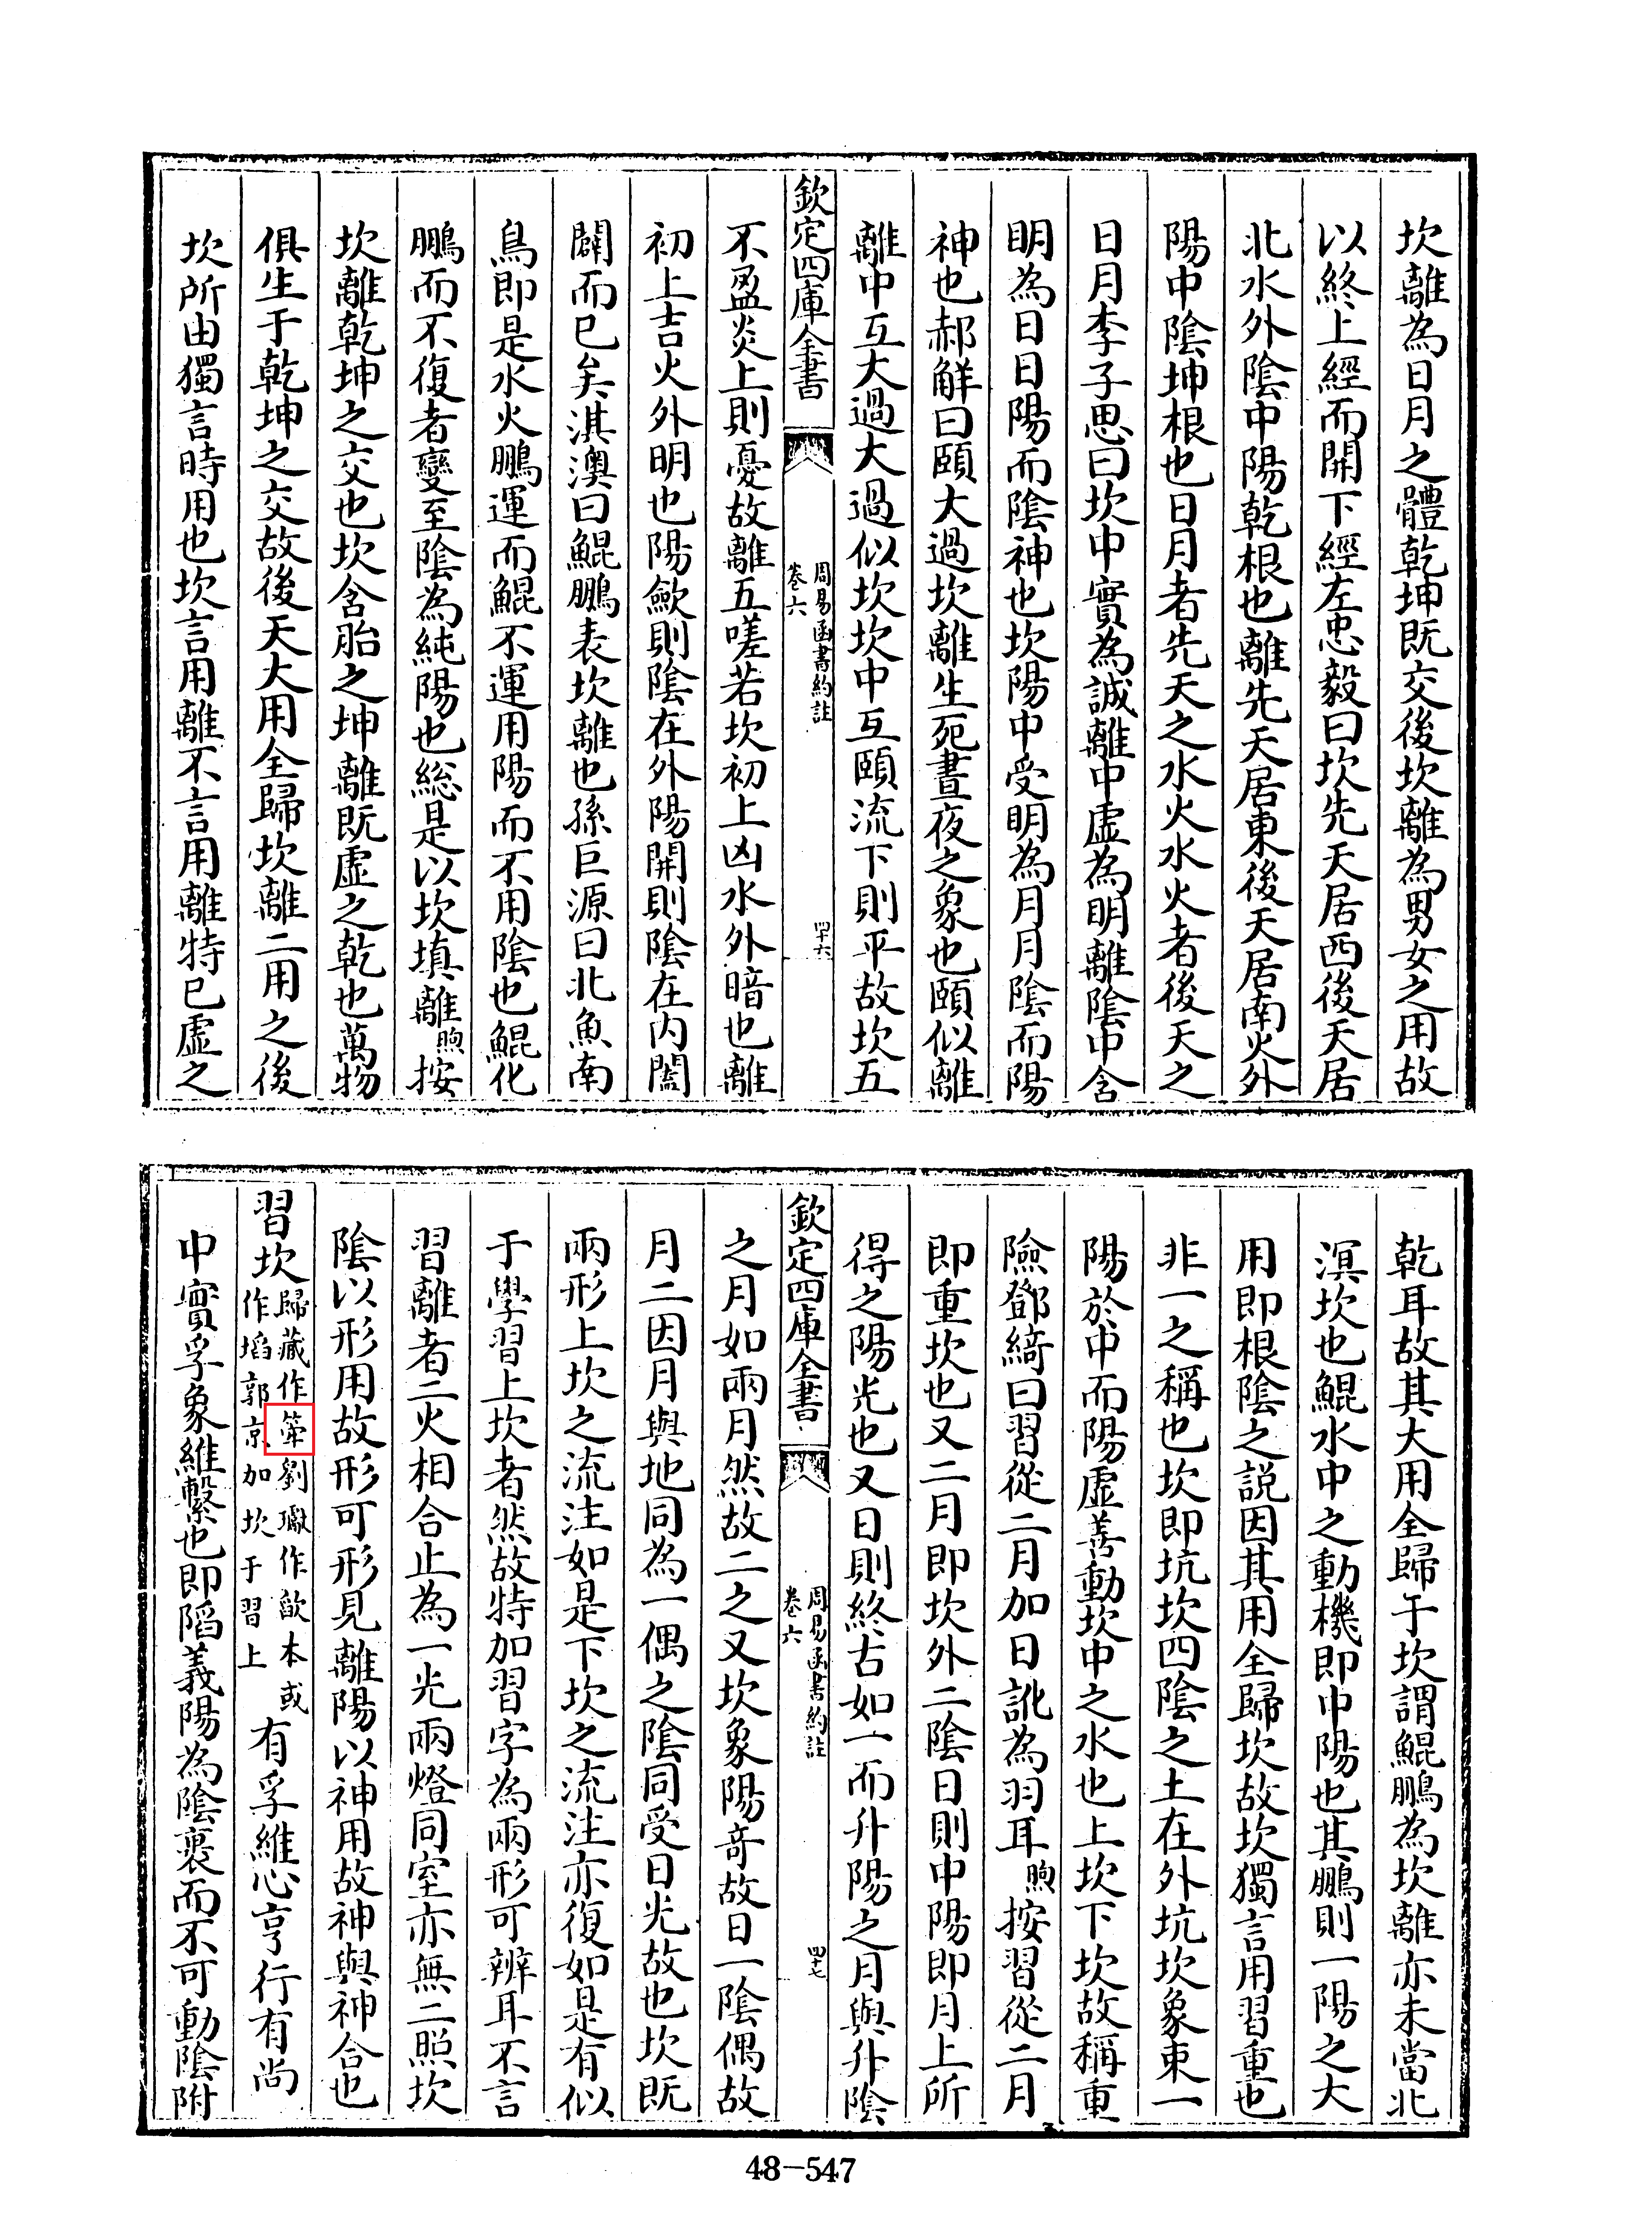 坎離為日月之體乾坤既交後坎離為男女之用故
以終上經而開下經左忠毅曰坎先天居西後天居
北水外陰中陽乾根也離先天居東後天居南火外
陽中陰坤根也日月者先天之水火水火者後天之
日月李子思曰坎中實為誠離中虛為明離陰中含
明為日日陽而陰神也坎陽中受明為月月陰而陽
神也郝解曰頤大過坎離生死晝夜之象也頤似離
離中互大過大過似坎坎中互頤流下則平故坎五
欽定四庫全書
周易函書約註
卷六
四十六
不盈炎上則憂故離五嗟若坎初上凶水外暗也離
初上吉火外明也陽歛則陰在外陽開則陰在內闔
闢而已矣淇澳曰鯤鵬表坎離也孫巨源曰北魚南
鳥即是水火鵬運而鯤不運用陽而不用陰也鯤化
鵬而不復者變至陰為純陽也総是以坎填離煦按
坎離乾坤之交也坎含胎之坤離既虛之乾也萬物
俱生于乾坤之交故後天大用全歸坎離二用之後
坎所由獨言時用也坎言用離不言用離特已虛之
乾耳故其大用全歸于坎謂鯤鵬為坎離亦未當北
溟坎也鯤水中之動機即中陽也其鵬則一陽之大
用即根陰之説因其用全歸坎故坎獨言用習重也
非一之稱也坎即坑坎四陰之土在外坑坎象東一
陽於中而陽虛善動坎中之水也上坎下坎故稱重
險鄧綺曰習從二月加日訛為羽耳煦按習從二月
即重坎也又二月即坎外二陰日則中陽即月上所
得之陽光也又日則終古如一而升陽之月與升陰
欽定四庫全書
周易函書約註
卷六
四十七
之月如兩月然故二之又坎象陽奇故日一陰偶故
月二因月與地同為一偶之陰同受日光故也坎既
兩形上坎之流注如是下坎之流注亦復如是有似
于學習上坎者然故特加習字為兩形可辨耳不言
習離者二火相合止為一光兩燈同室亦無二照坎
陰以形用故形可形見離陽以神用故神與神合也
習坎歸藏作劉瓛作欿本或作埳郭京加坎于習上有孚維心亨行有尚
中實孚象維繫也即䧟義陽為陰裹而不可動陰附
48-547